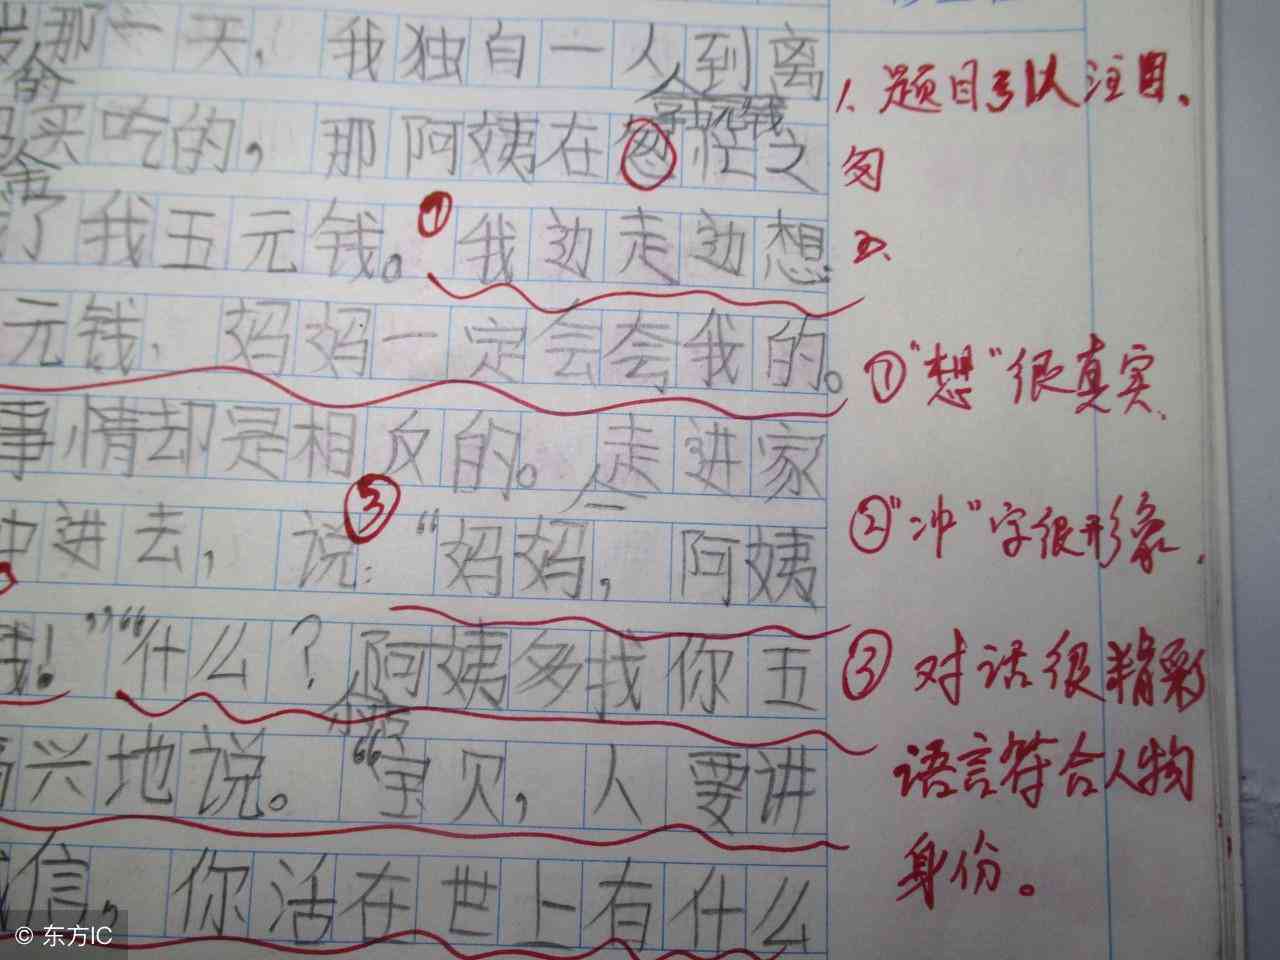 岁那一天，我独自一人到离
的
买吃的，那阿姨在匆忙之
了我五元钱。①我边走边想：
元钱，妈妈一定会夸我的。
事情却是相反的。走进家
冲进去，说：③“妈妈，阿姨
钱！”“什么？阿姨多找你五
高兴地说。“宝贝，人要讲
诚信，你活在世上有什么
1、题目引人注目。
匆
①“想”很真实。
②“冲”字很形象。
③对话很精彩
语言符合人物
身份。
© 东方IC